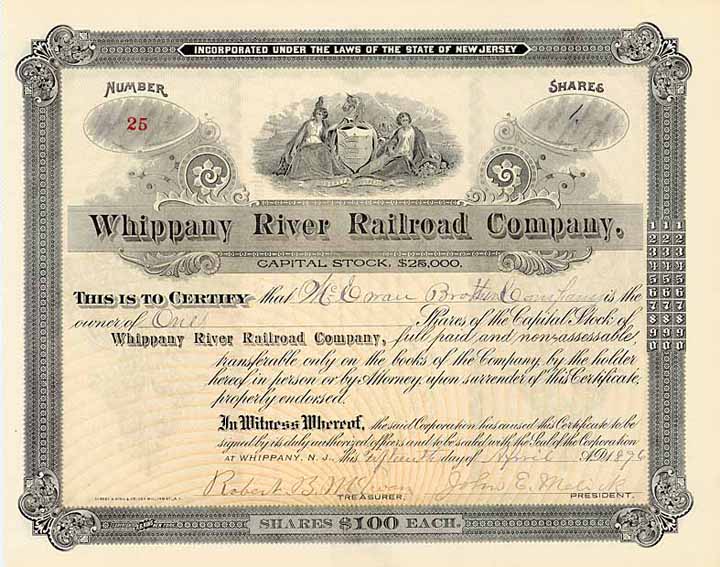 INCORPORATED UNDER THE LAWS OF THE STATE OF NEW JERSEY
NUMBER
25
SHARES
1
Whippany River Railroad Company.
CAPITAL STOCK, $25,000.
THIS IS TO CERTIFY that McEwan Brothers Company is the
owner of One Shares of the Capital Stock of
WHIPPANY RIVER RAILROAD COMPANY, full paid and non-assessable,
transferable only on the books of the Company by the holder
hereof in person or by Attorney, upon surrender of this Certificate
properly endorsed.
In Witness Whereof, the said Corporation has caused this Certificate to be
signed by its duly authorized officers and to be sealed with the Seal of the Corporation
AT WHIPPANY, N. J., this fifteenth day of April A.D. 1896
Robert B. McEwan
TREASURER.
John E. Melick
PRESIDENT.
SHARES $100 EACH.